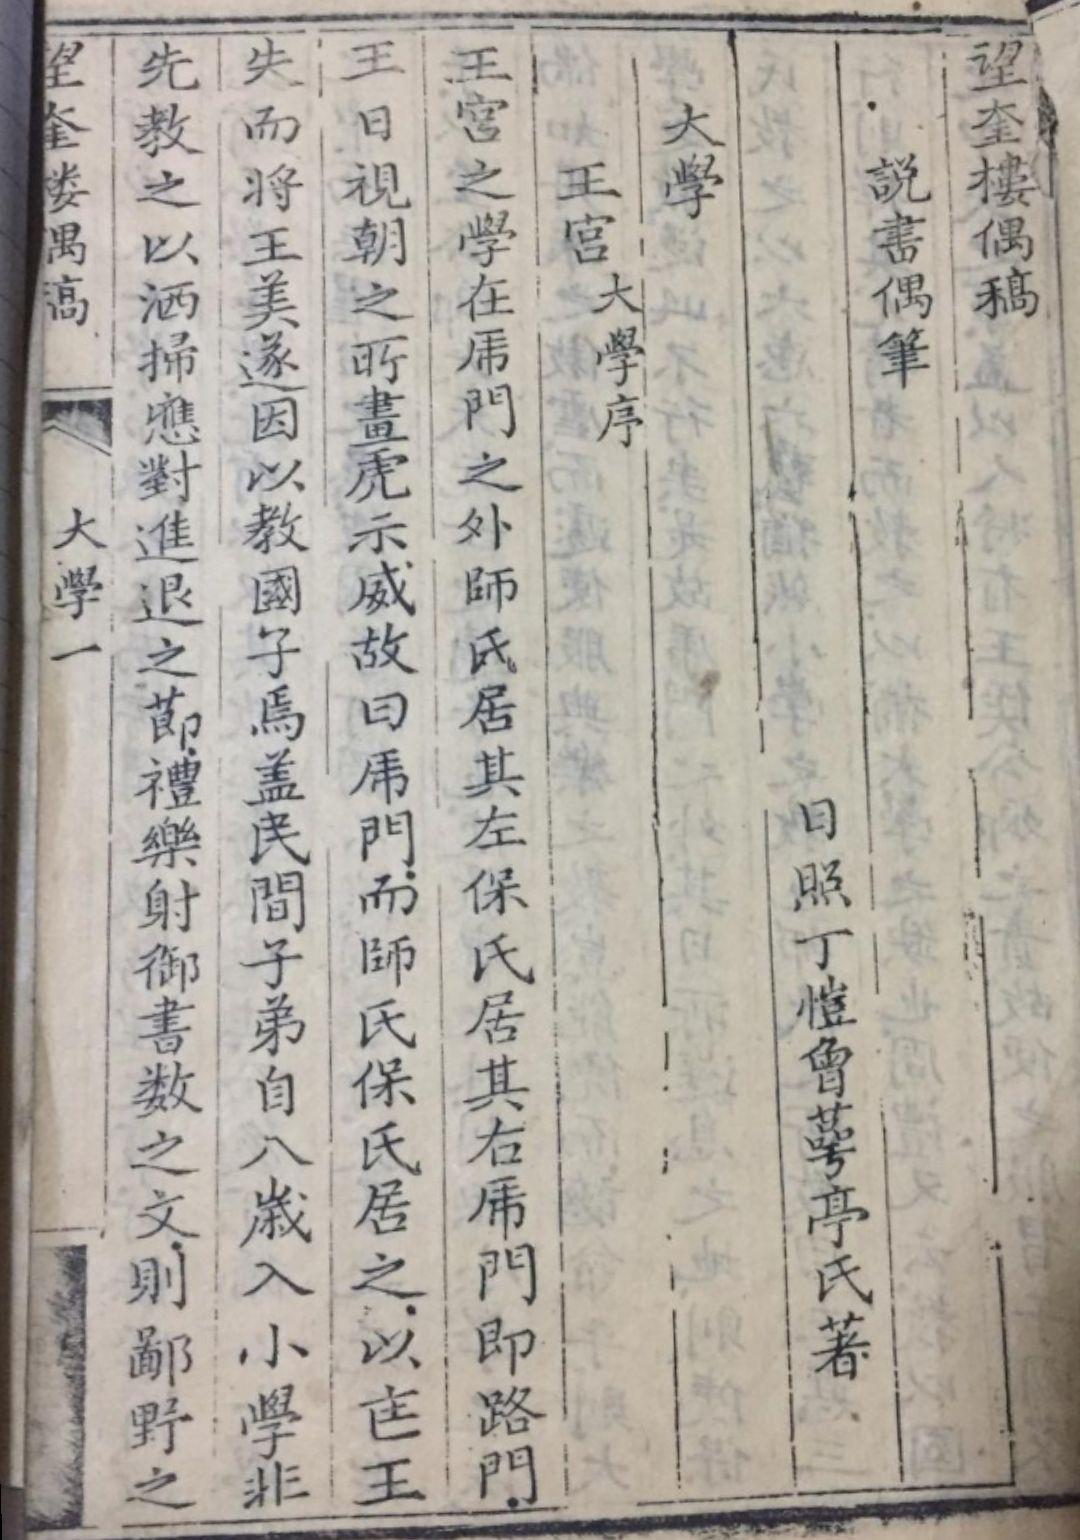 望奎樓偶稿
説書偶筆
日照丁愷曾萼亭氏著
大學
王宮 大學序
王宮之學在虎門之外師氏居其左保氏居其右虎門即路門
王日視朝之所畫虎示威故曰虎門而師氏保氏居之以匡王
失而將王美遂因以教國子焉盖民間子弟自八歲入小學非
先教之以洒掃應對進退之節禮樂射御書数之文則鄙野之
望奎樓偶稿 大學一